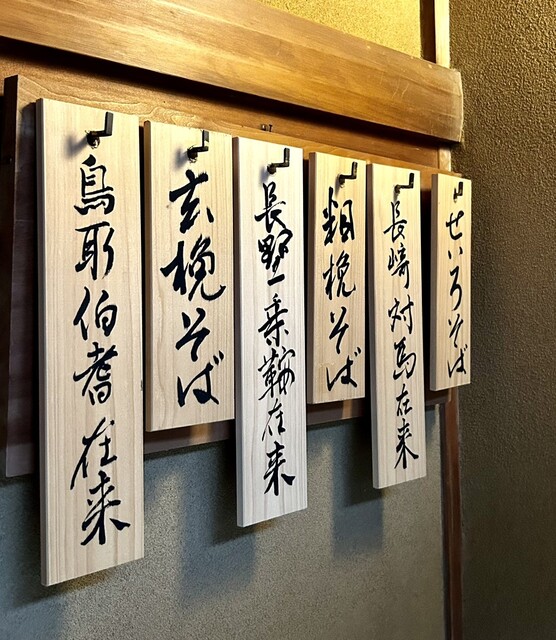 せいろそば
長崎対馬在来
粗挽そば
長野乗鞍在来
玄挽そば
鳥取伯耆在来